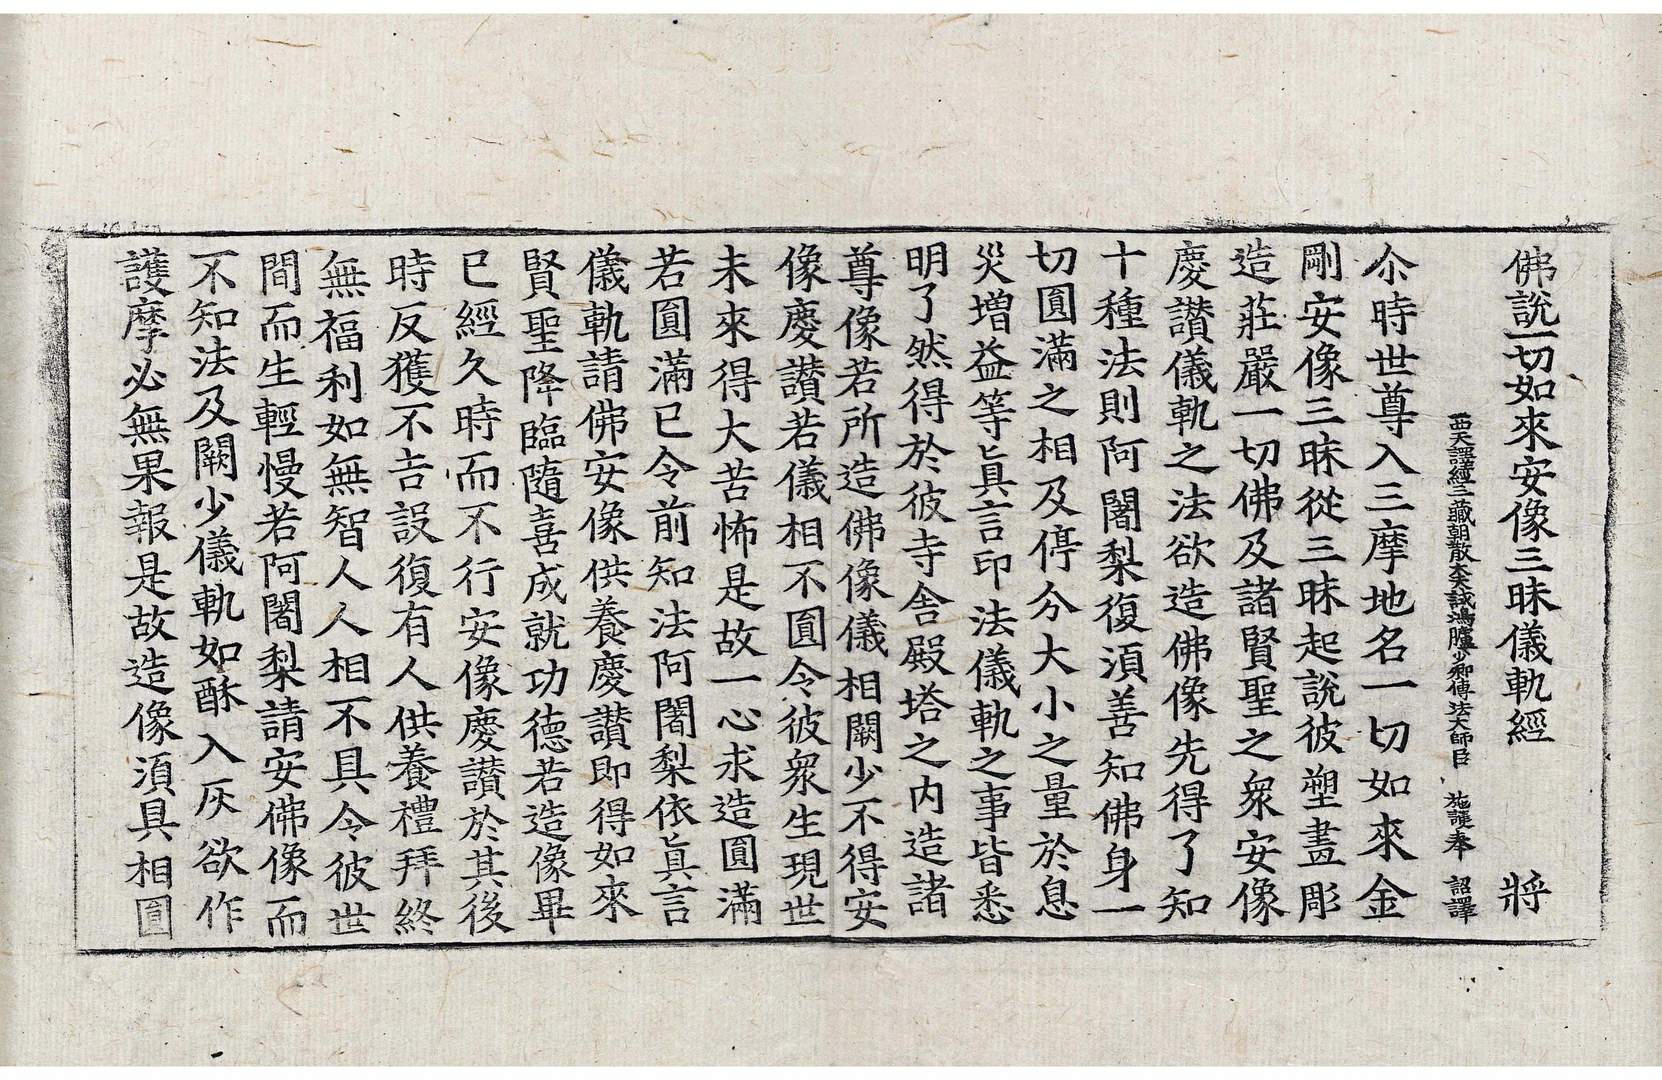 佛說一切如來安像三昧儀軌經 將
西天譯經三藏朝散大夫試鴻臚少卿傳法大師臣 施護奉 詔譯
尒時世尊入三摩地名一切如來金
剛安像三昧從三昧起說彼塑畫彫
造莊嚴一切佛及諸賢聖之衆安像
慶讃儀軌之法欲造佛像先得了知
十種法則阿闍梨復湏善知佛身一
切圓滿之相及停分大小之量於息
災增益等真言印法儀軌之事皆悉
明了然得於彼寺舍殿塔之内造諸
尊像若所造佛像儀相闕少不得安
像慶讃若儀相不圓令彼衆生現世
未來得大苦怖是故一心求造圓滿
若圓滿已令前知法阿闍梨依真言
儀軌請佛安像供養慶讃即得如來
賢聖降臨隨喜成就功德若造像畢
已經久時而不行安像慶讃於其後
時反獲不吉設復有人供養禮拜終
無福利如無智人人相不具令彼世
間而生輕慢若阿闍梨請安佛像而
不知法及闕少儀軌如酥入灰欲作
護摩必無果報是故造像湏具相圓